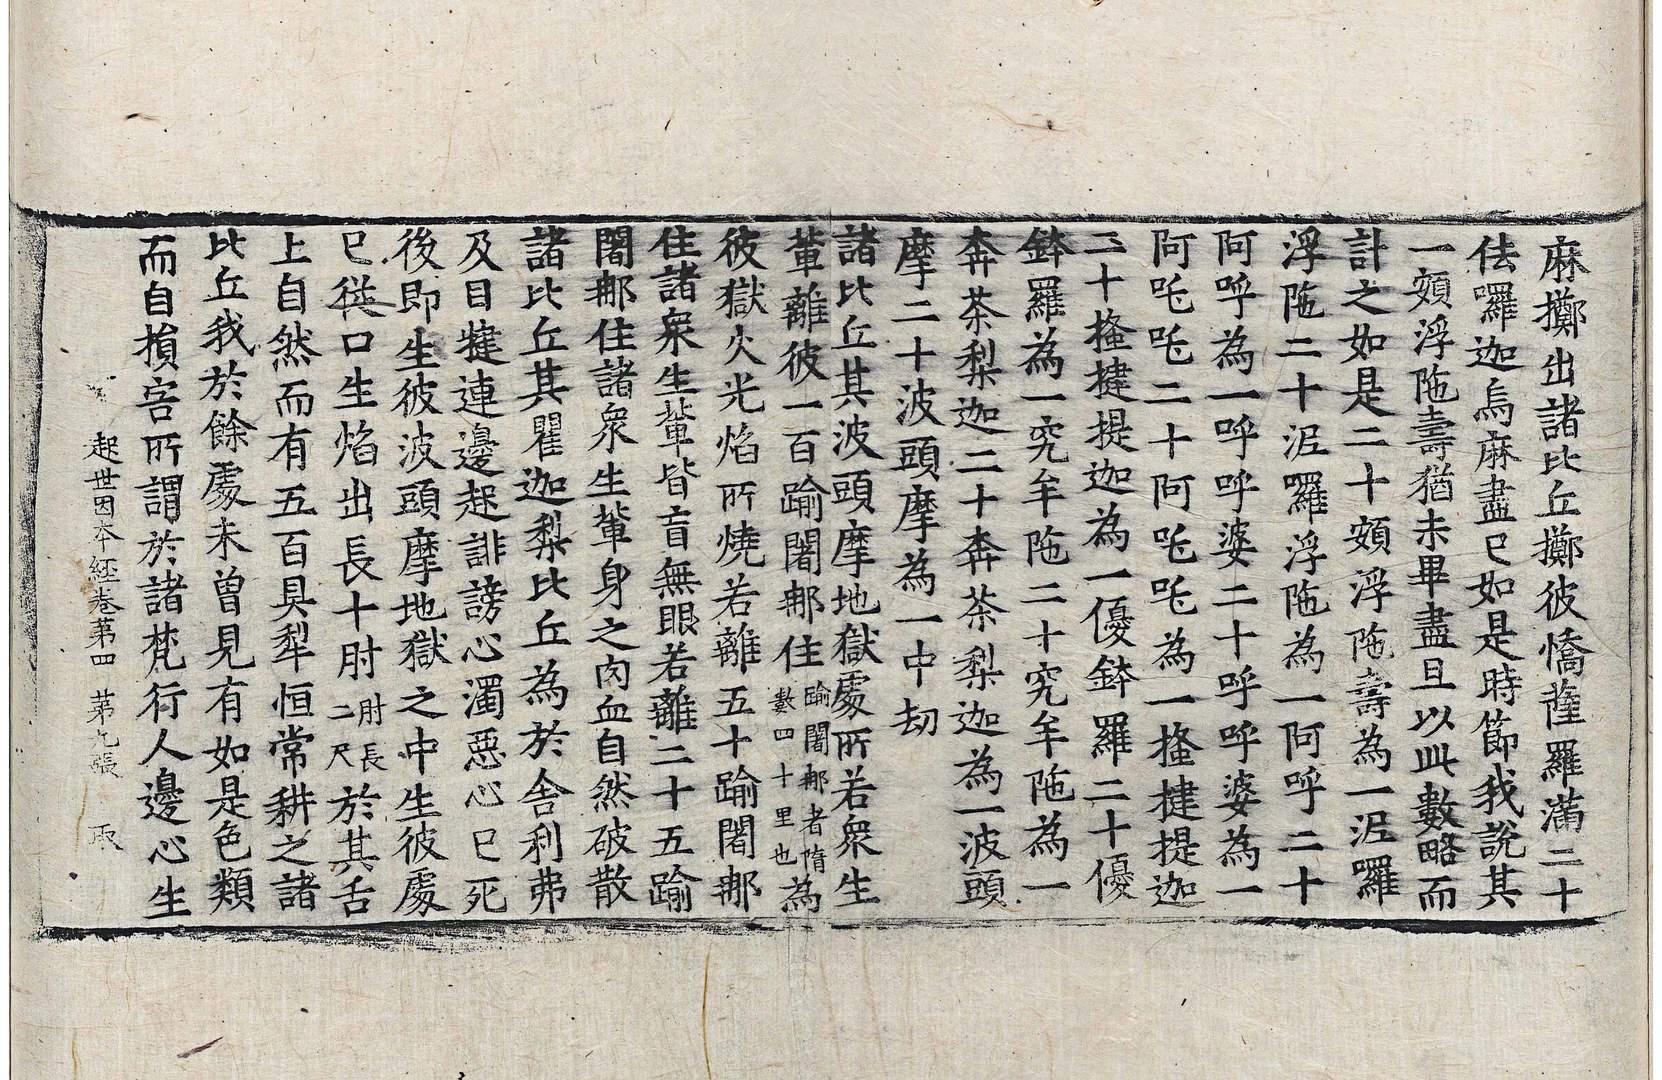 麻擲出諸比丘擲彼憍薩羅滿二十
佉囉迦烏麻盡已如是時節我說其
一頞浮陁壽猶未畢盡且以此數略而
計之如是二十頞浮陁壽為一泥囉
浮陁二十泥囉浮陁為一阿呼二十
阿呼為一呼呼婆二十呼呼婆為一
阿吒吒二十阿吒吒為一搔揵提迦
二十搔揵提迦為一優鉢羅二十優
鉢羅為一究牟陁二十究牟陁為一
奔茶梨迦二十奔茶梨迦為一波頭
摩二十波頭摩為一中劫
諸比丘其波頭摩地獄處所若衆生
輩離彼一百踰闍那住踰闍那者隋數四十里也為
彼獄火光焰所燒若離五十踰闍那
住諸衆生輩皆盲無眼若離二十五踰
闍那住諸衆生輩身之肉血自然破散
諸比丘其瞿迦梨比丘為於舍利弗
及目揵連邊起誹謗心濁惡心已死
後即生彼波頭摩地獄之中生彼處
已從口生焰出長十肘肘長二尺於其舌
上自然而有五百具犁恒常耕之諸
比丘我於餘處未曾見有如是色類
而自損害所謂於諸梵行人邊心生
起世因本經卷第四 第九張 取